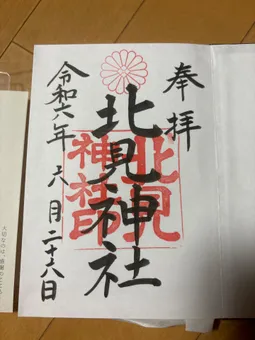 奉拝
北見神社
北見
神社印
令和六年六月二十六日